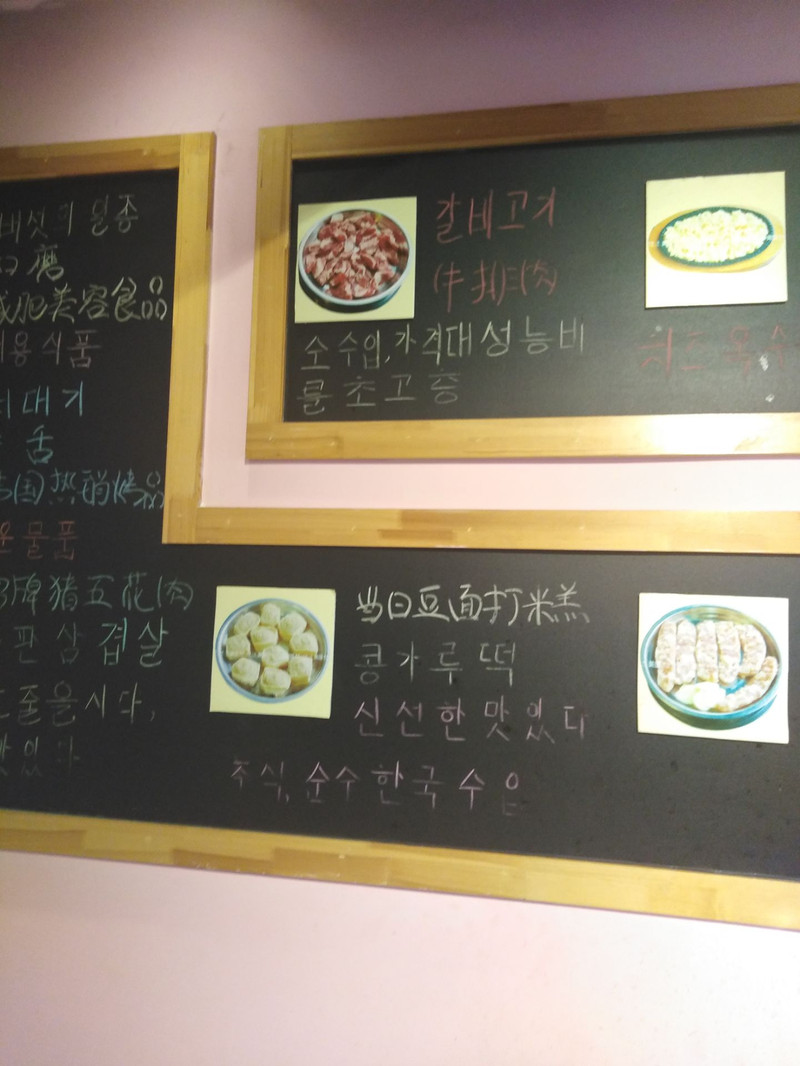 버섯의 일종
口磨
减肥美容食品
용식품
대기
舌
国热销烤品
물품
牌猪五花肉
판삼겹살
줄을시다,
맛있다
갈비고기
(牛排肉)
소수입,가격대성능비
를초고층
치즈옥수
当日豆面打米糕
콩가루떡
신선한맛있다
주식,순수한국수입